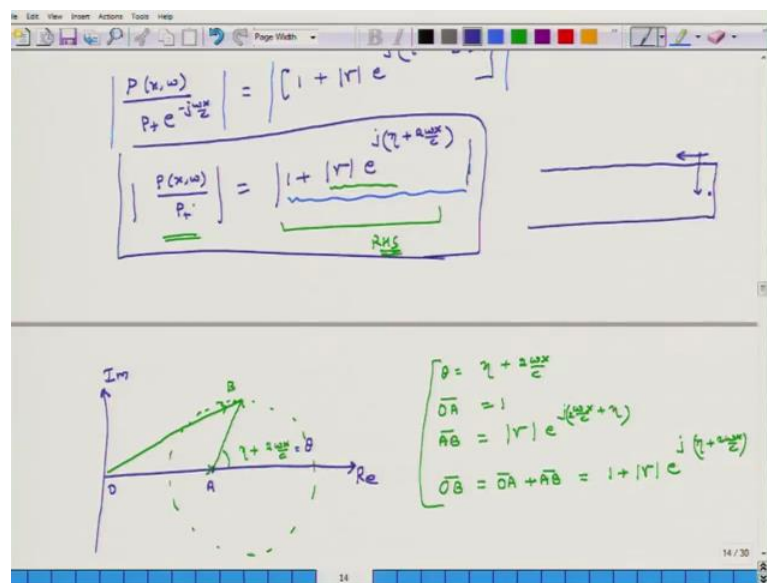 Edit View Insert Actions Tools Help
Page Width
| P(x,ω) / P₊ e^{-jωx/c} | = | [1 + |r| e^{j(
| P(x,ω) / P₊ | = | 1 + |r| e^{j(η + 2ωx/c)} |
RHS
Im
B
η + 2ωx/c = θ
O
A
Re
θ = η + 2ωx/c
OA = 1
AB = |r| e^{j(2ωx/c + η)}
OB = OA + AB = 1 + |r| e^{j(η + 2ωx/c)}
14 / 30
14